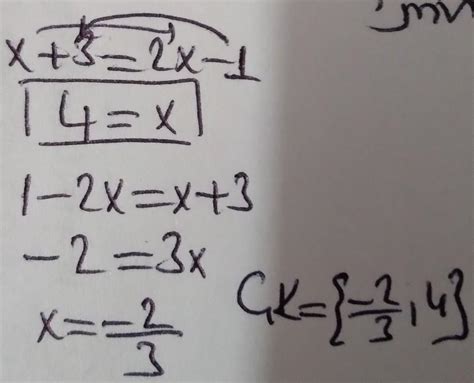 x + 3 = 2x - 1
4 = x
1 - 2x = x + 3
-2 = 3x
x = -2/3
ÇK = {-2/3, 4}